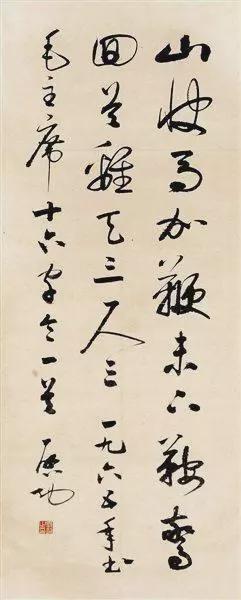 山快马加鞭未下鞍驚
回首離天三尺三 一九六五年书
毛主席十六字令一首 启功